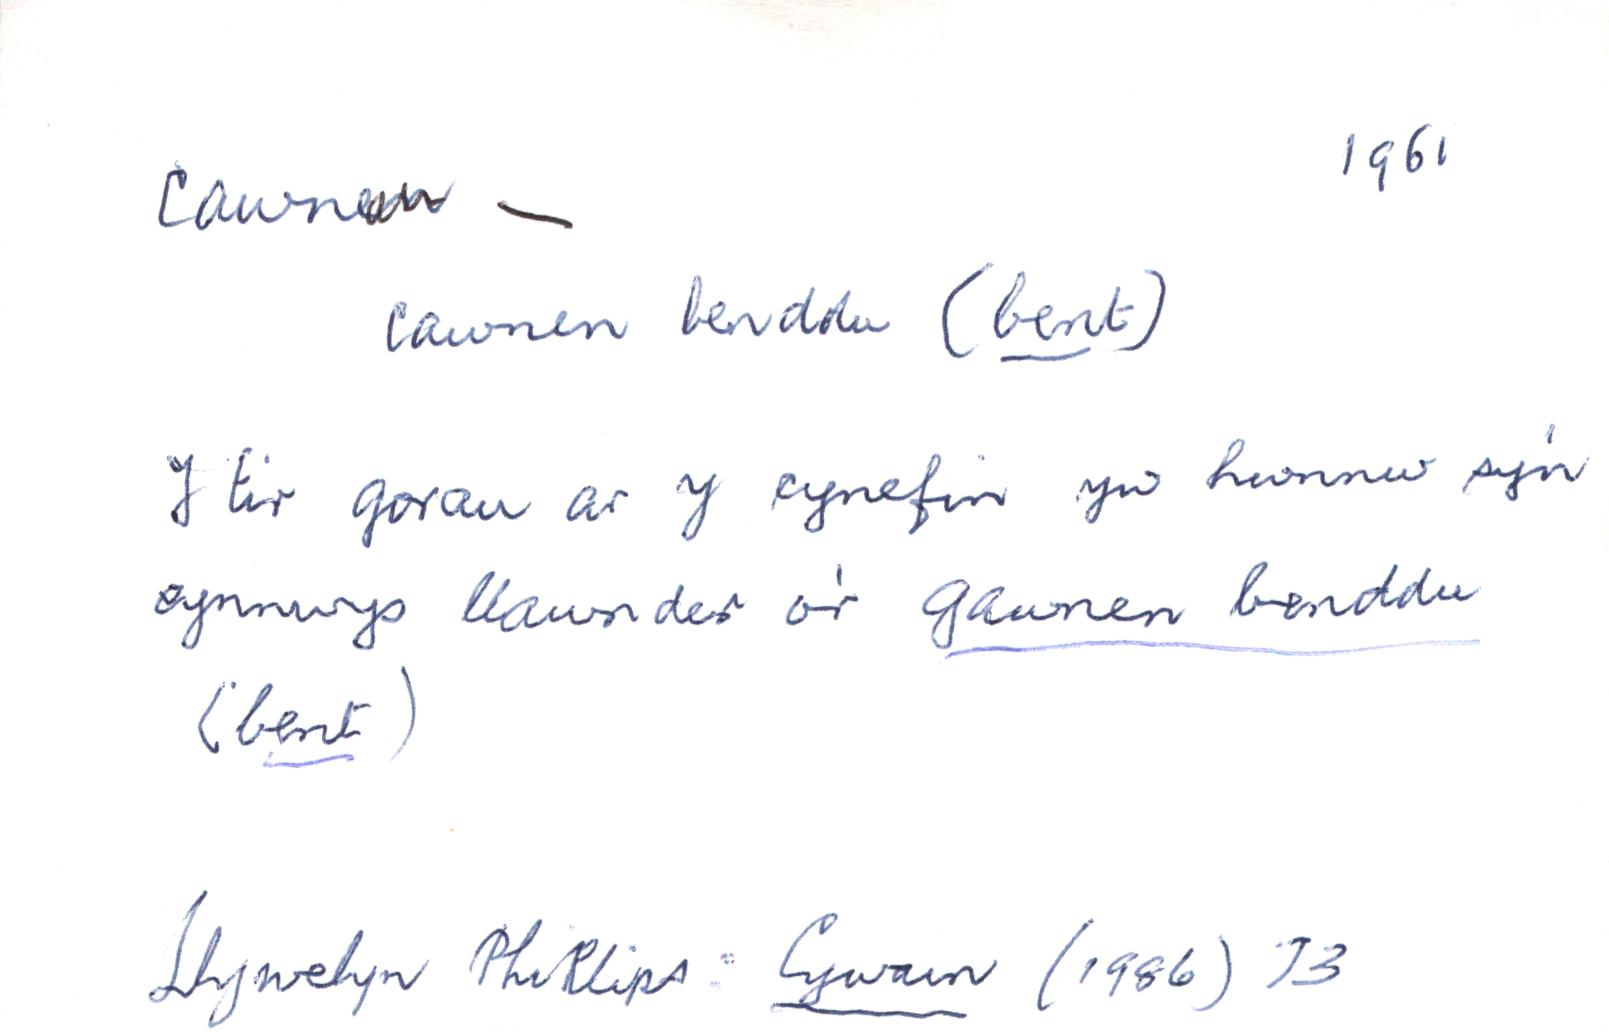 1961
Cawnen —
cawnen benddu (bent)
Y tir gorau ar y cynefin yw hwnnw sy'n
cynnwys llawnder o'r gawnen benddu
(bent)
Llywelyn Phillips: Cywain (1986) 73